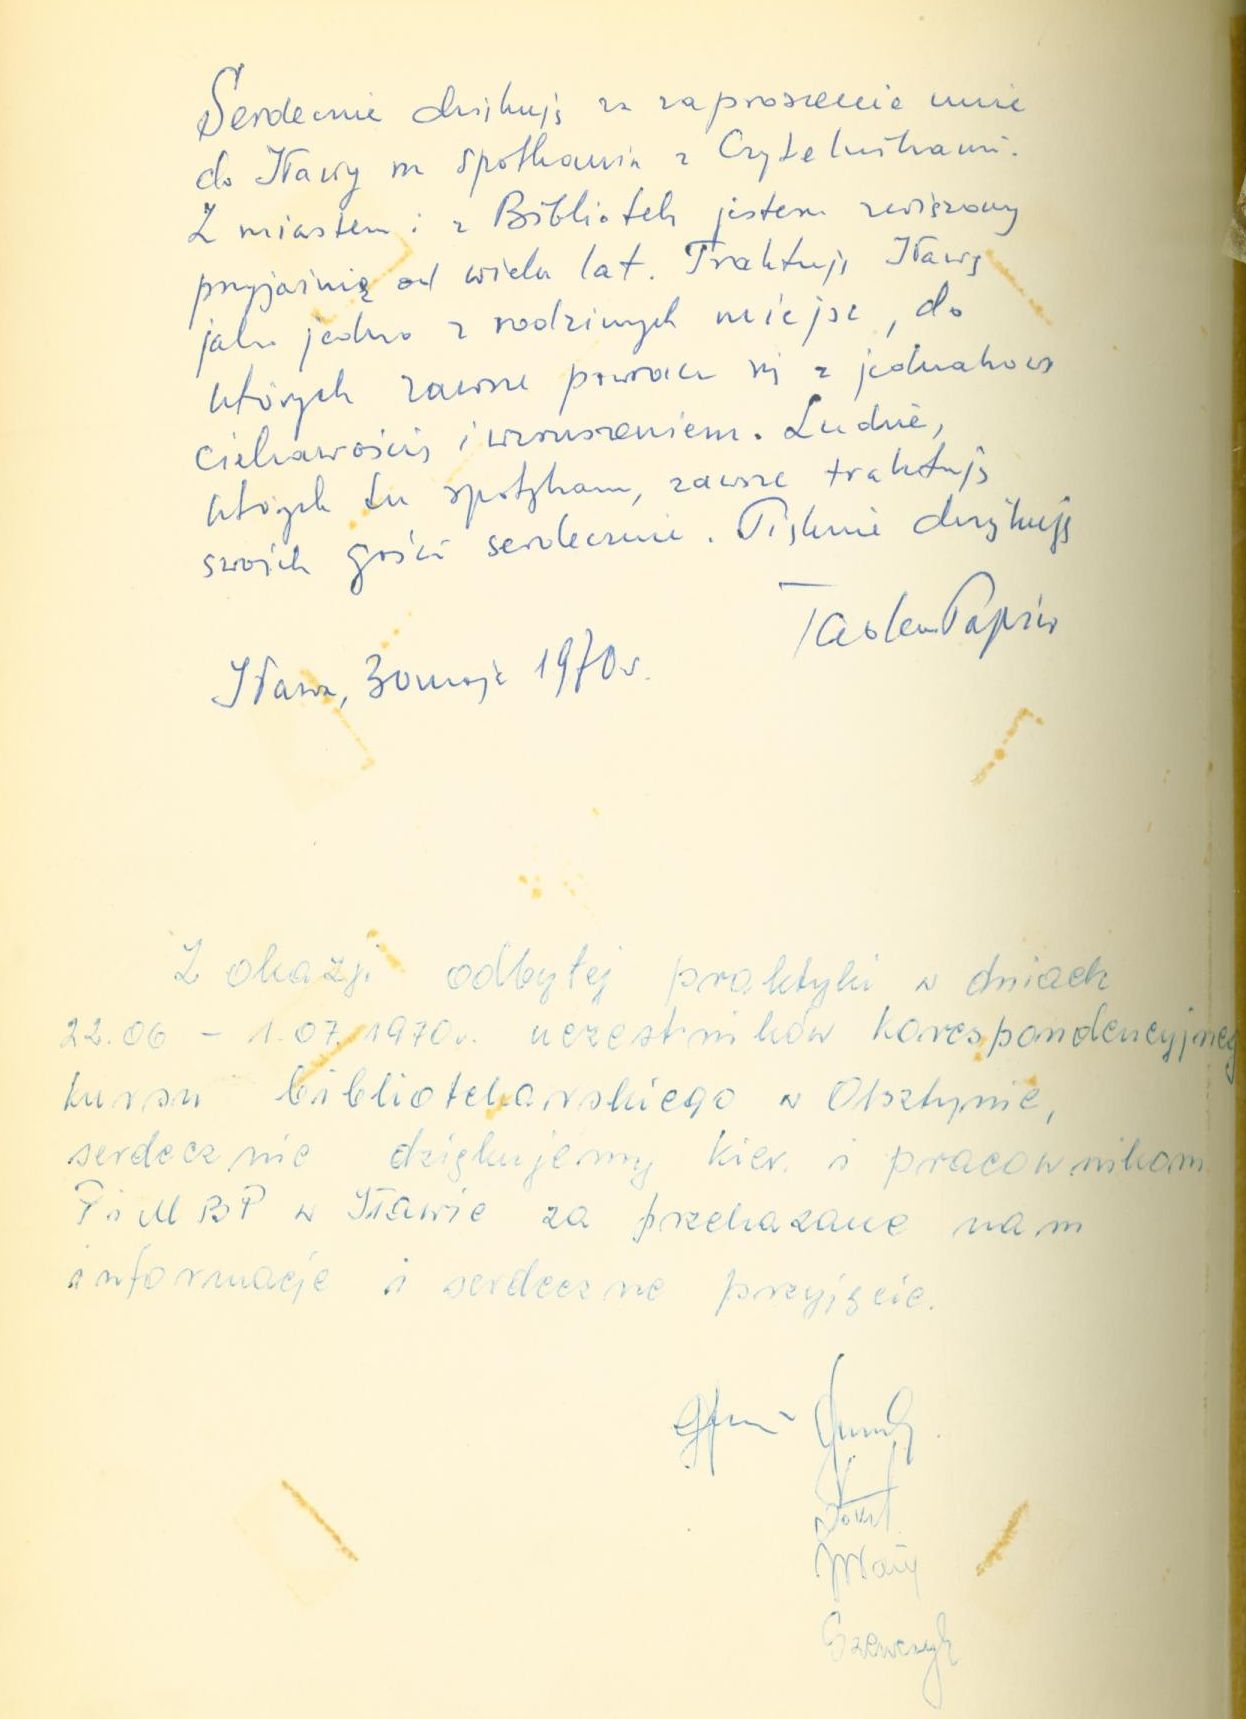 Serdecznie dziękuję za zaproszenie mnie
do Iławy na spotkania z Czytelnikami.
Z miastem i z Biblioteką jestem związany
przyjaźnią od wielu lat. Traktuję Iławę
jako jedno z rodzinnych miejsc, do
których zawsze powraca się z jednakową
ciekawością i wzruszeniem. Ludzie,
których tu spotykam, zawsze traktują
swoich gości serdecznie. Pięknie dziękuję
Iława, 30 maja 1970 r.
Z okazji odbytej praktyki w dniach
22.06 – 1.07.1970 r. uczestników korespondencyjneg
kursu bibliotekarskiego w Olsztynie,
serdecznie dziękujemy kier. i pracownikom
PiMBP w Iławie za przekazane nam
informacje i serdeczne przyjęcie.
Szewczyk